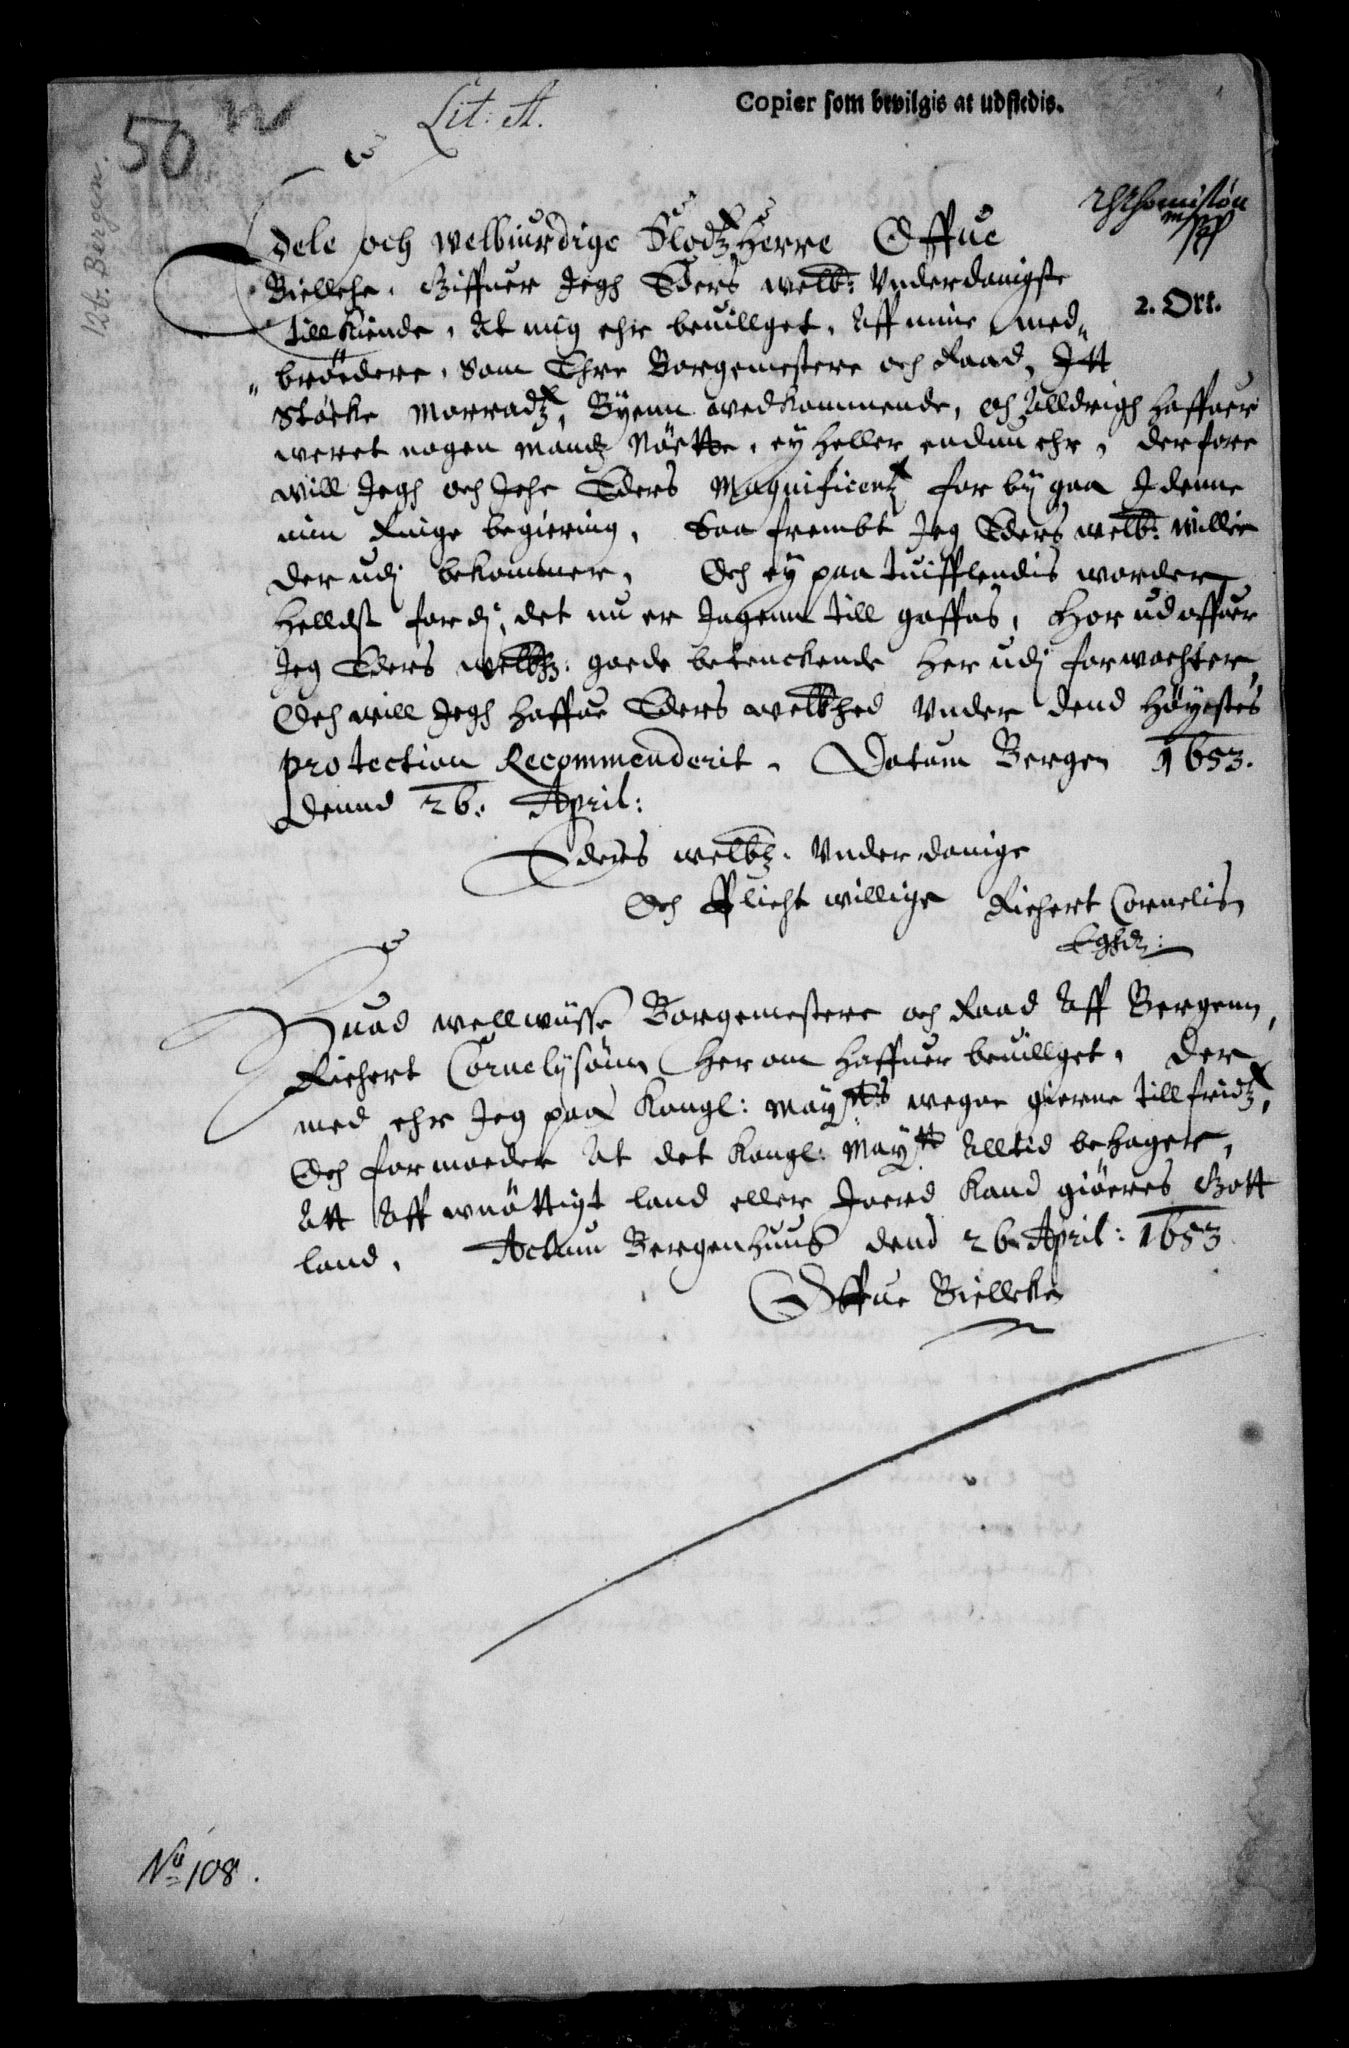 Copier som bevilgis at udstedis.
50
Lit: A.
126. Bergen.
2. Ort.
Edele och welbiurdige Slodtz Herre Offue
Biellche. Giffuer Jegh Eders welb: Vnderdanigste
till kiende, At mig ehr beuillget, Aff mine med-
brödere, Som Ehre Borgemestere och Raad, Itt
Støcke Morradtz, Byenn wedkommende, och Alldrigh haffuer
weret nogen Mandz Nøtte, ey heller endnu ehr, derfore
will Jegh och Iche Eders Magnificentz forby gaa I denne
min Ringe begiering, Saa frembt Jeg Eders welb: Willie
der udj bekommer, Och ey paa tuifflendis worder,
Helldst fordj, det nu er Ingenn till gaffns, Hor udoffuer
Jeg Eders welbhz: goede betenckende Her udj forwachter,
Och will Jegh Haffue Eders welbhed Vnder dend Høyestes
protection Recommenderit. Datum Bergen 1653.
Dennd 26. April:
Eders welbhz. Vnderdanige
Och Plicht willige Richert Cornelisn
Eghd:
Huad wellwiisse Borgemestere och Raad Aff Bergenn,
Richert Cornelysönn Her om Haffuer beuillget, Der
med ehr Jeg paa Kongl: May:tts wegne gierne tillfridtz,
Och formoeder At det Kongl: May:tt Alltid behager,
Att Aff wnøttigt land eller Joerd Kand giøeres Gott
land. Actum Bergenhuus dend 26. April: 1653.
Offue Biellcke
No 108.